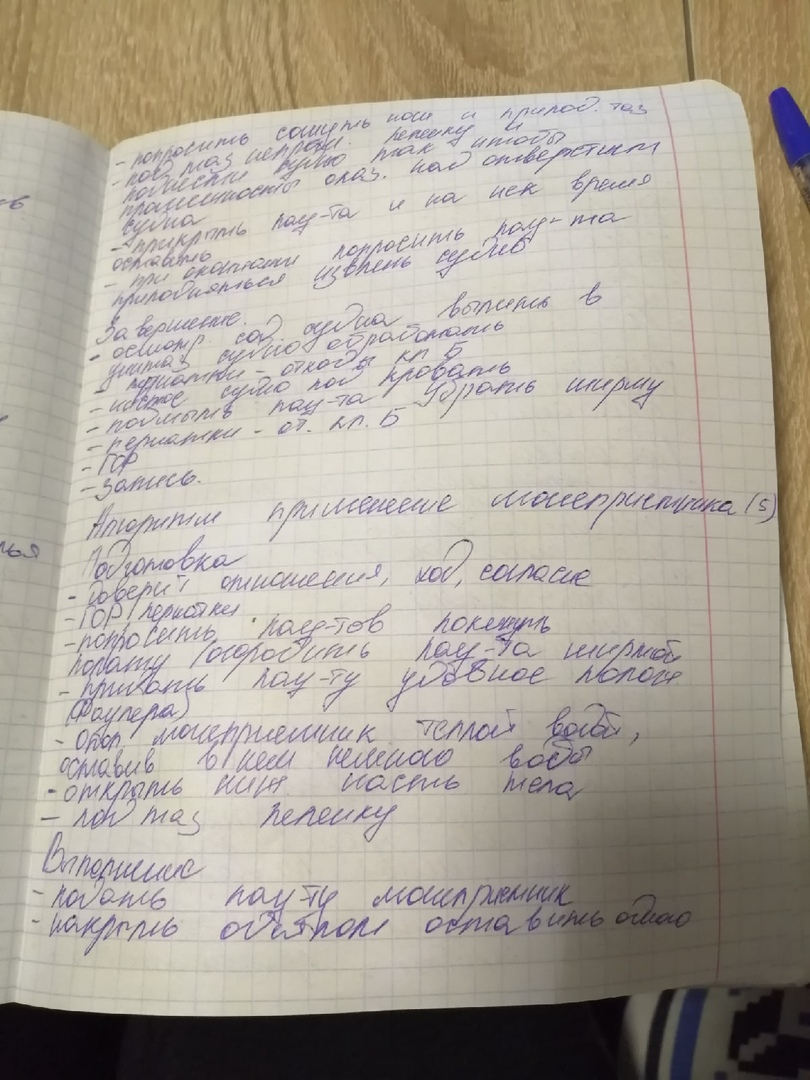 - попросить согнуть ноги и припод. таз
- под таз непром. пеленку и
подвести судно так чтобы
промежность оказ. над отверстием
судна
- прикрыть пац-та и на нек время
оставить
- при окончании попросить пац-та
приподняться извлечь судно
Завершение.
- осмотр. сод судна вылить в
унитаз судно обработать
- перчатки - отходы кл Б
- чистое судно под кровать
- подмыть пац-та убрать ширму
- перчатки - от. кл. Б
- ГОР
- Запись.
Алгоритм применение мочеприемника (5)
Подготовка
- доверит отношения, ход, согласие
- ГОР, перчатки
- попросить пац-тов покинуть
палату /огородить пац-та ширмой
- придать пац-ту удобное полож
(Фаулера)
- опол мочеприемник теплой водой,
оставив в нем немного воды
- открыть ниж часть тела
- под таз пеленку
Выполнение
- подать пац-ту мочеприемник
- накрыть одеялом оставить одного
ь
ья